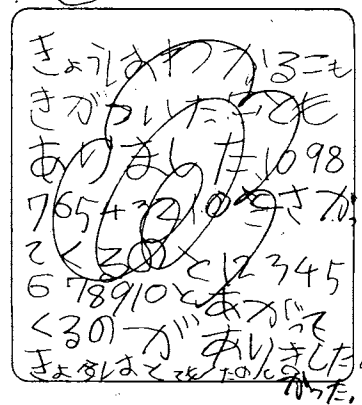 きょうはわかるこも
きがついたことも
ありました1098
76543210とさがっ
てくるのと12345
678910とあがって
くるのがありました。
きょうはとてもたのし
かった。